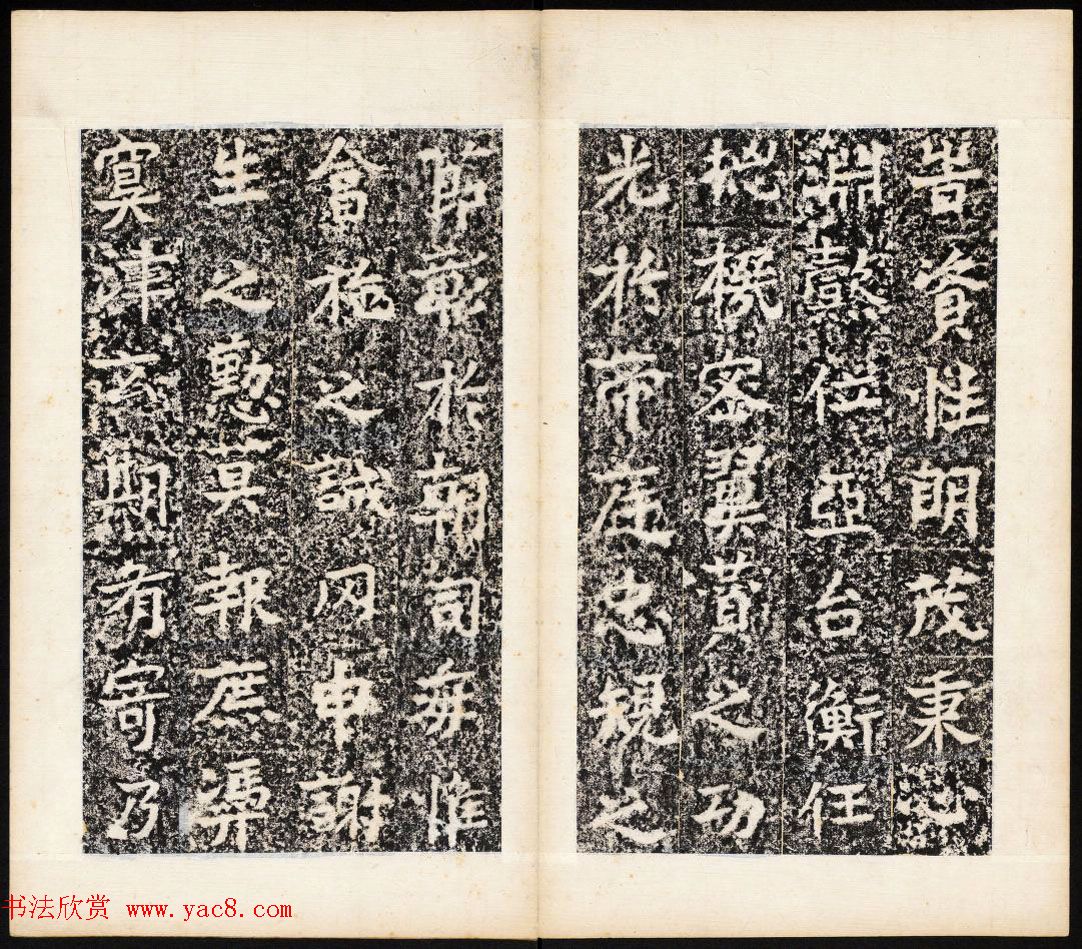 皆資性明茂秉心
淵懿位亞台衡任
揔機密翼賛之功
光於帝庭忠規之
節彰於朝司每惟
會施之誠罔申謝
生之懃莫報庶憑
冥津玄期有寄乃
书法欣赏 www.yac8.com